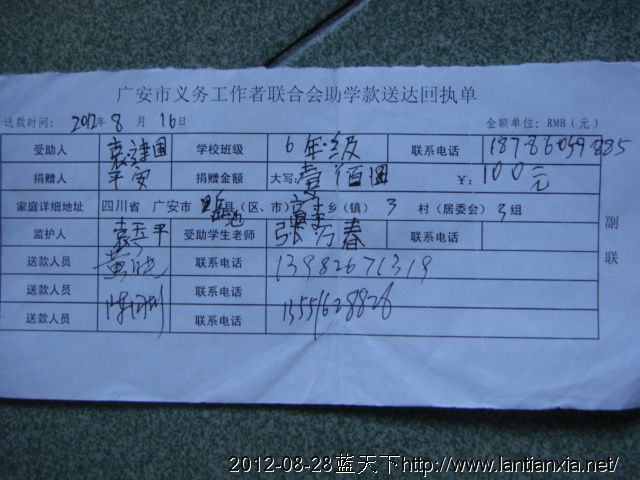 广安市义务工作者联合会助学款送达回执单
送款时间: 2012年 8 月 16日 金额单位: RMB (元)
受助人 袁建国 学校班级 6年级 联系电话 18786059885
捐赠人 平安 捐赠金额 大写: 壹佰 ¥: 100元
家庭详细地址 四川省 广安市 岳池县(区、市) 乡(镇) 3 村(居委会) 3组
监护人 袁玉平 受助学生老师 张万春 联系电话
送款人员 黄 联系电话 13982671319
送款人员 联系电话
送款人员 陈 联系电话 13551628828
副联
2012-08-28蓝天下http://www.lantianxia.net/